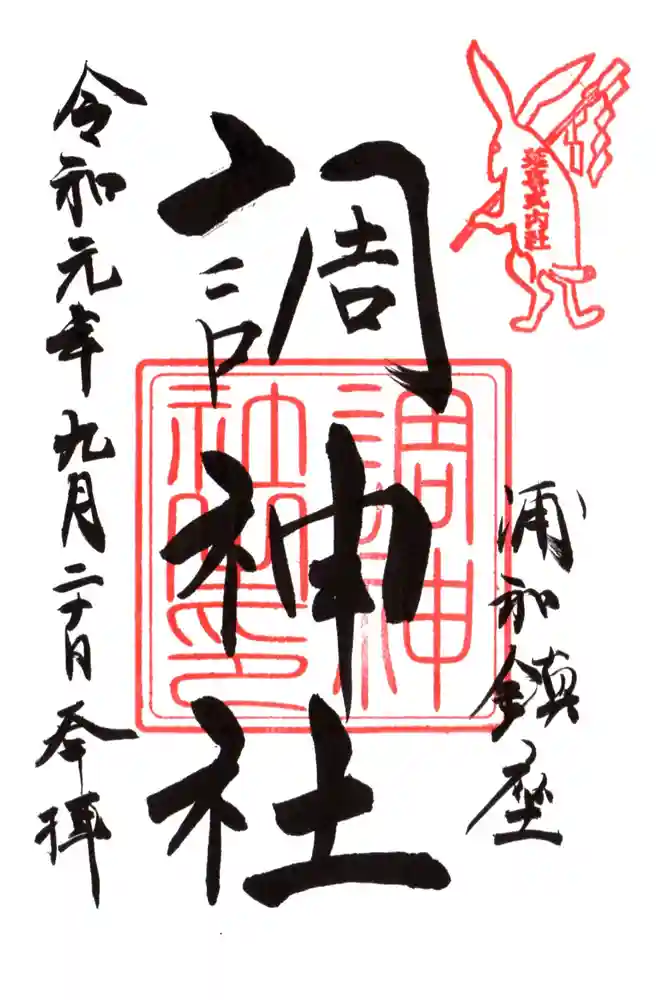 延喜式内社
浦和鎮座
調神社
調神
社之印
令和元年九月二十日 奉拝